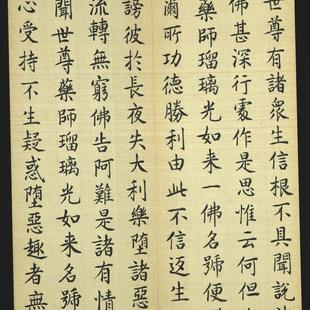 世尊有諸衆生信根不具聞說
佛甚深行處作是思惟云何但
藥師瑠璃光如来一佛名號便
爾所功德勝利由此不信返生
謗彼於長夜失大利樂墮諸惡
流轉無窮佛告阿難是諸有情
聞世尊藥師瑠璃光如来名號
心受持不生疑惑墮惡趣者無